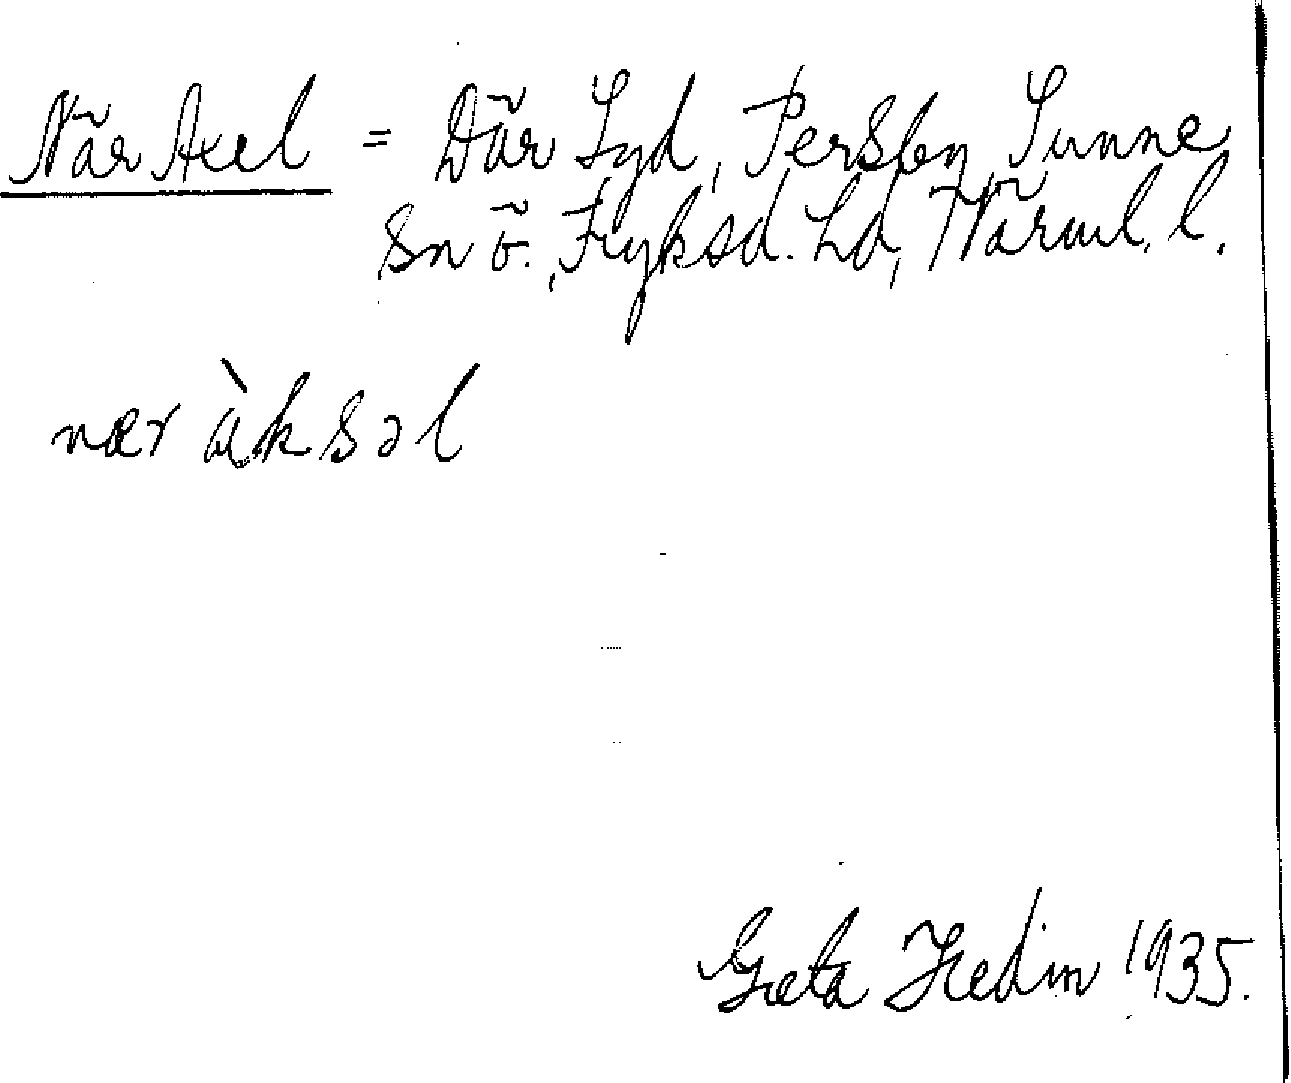 När Axel = Där Syd, Persby, Sunne
sn ö. Fryksd. hd, Värml. l.
nær àksəl
Greta Hedin 1935.